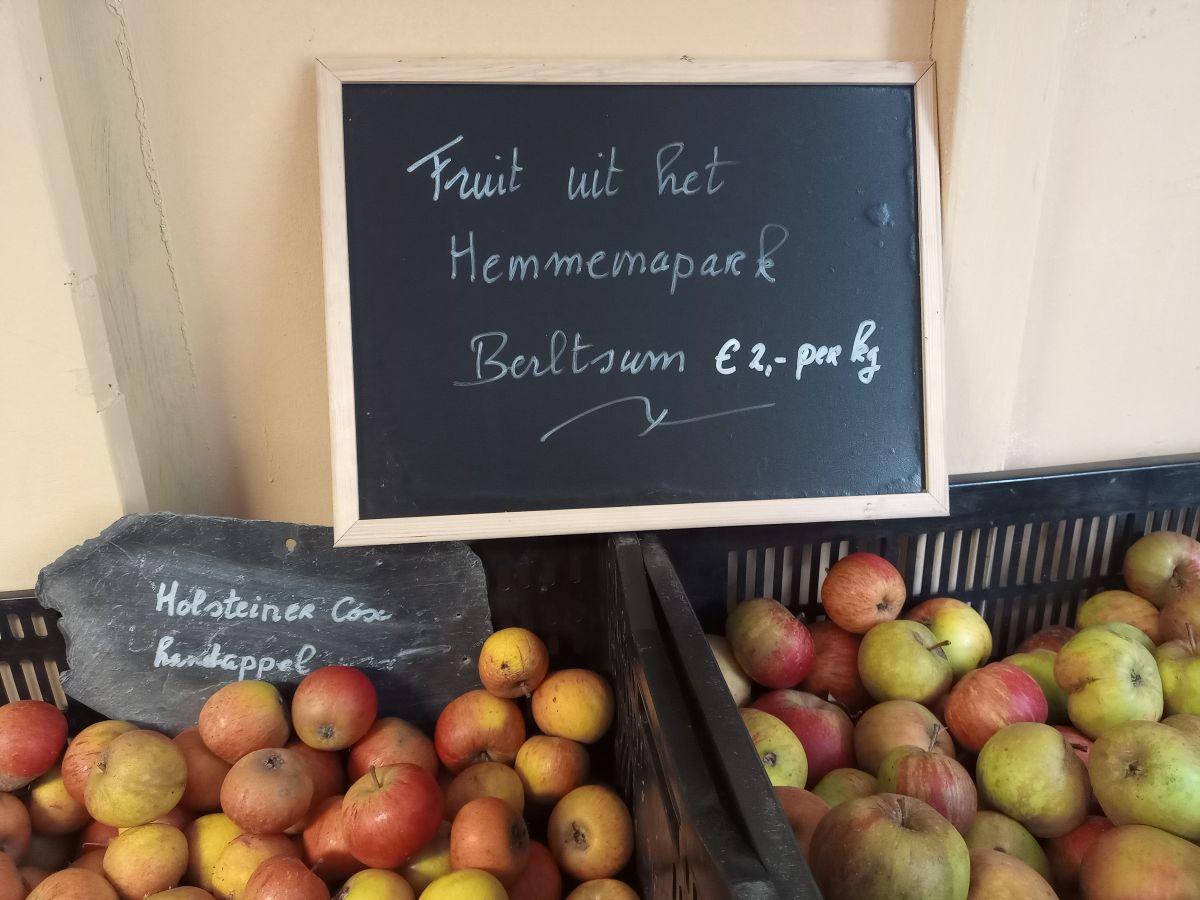 Fruit uit het
Hemmemapark
Berltsum € 2,- per kg
Holsteiner Cox
handappel